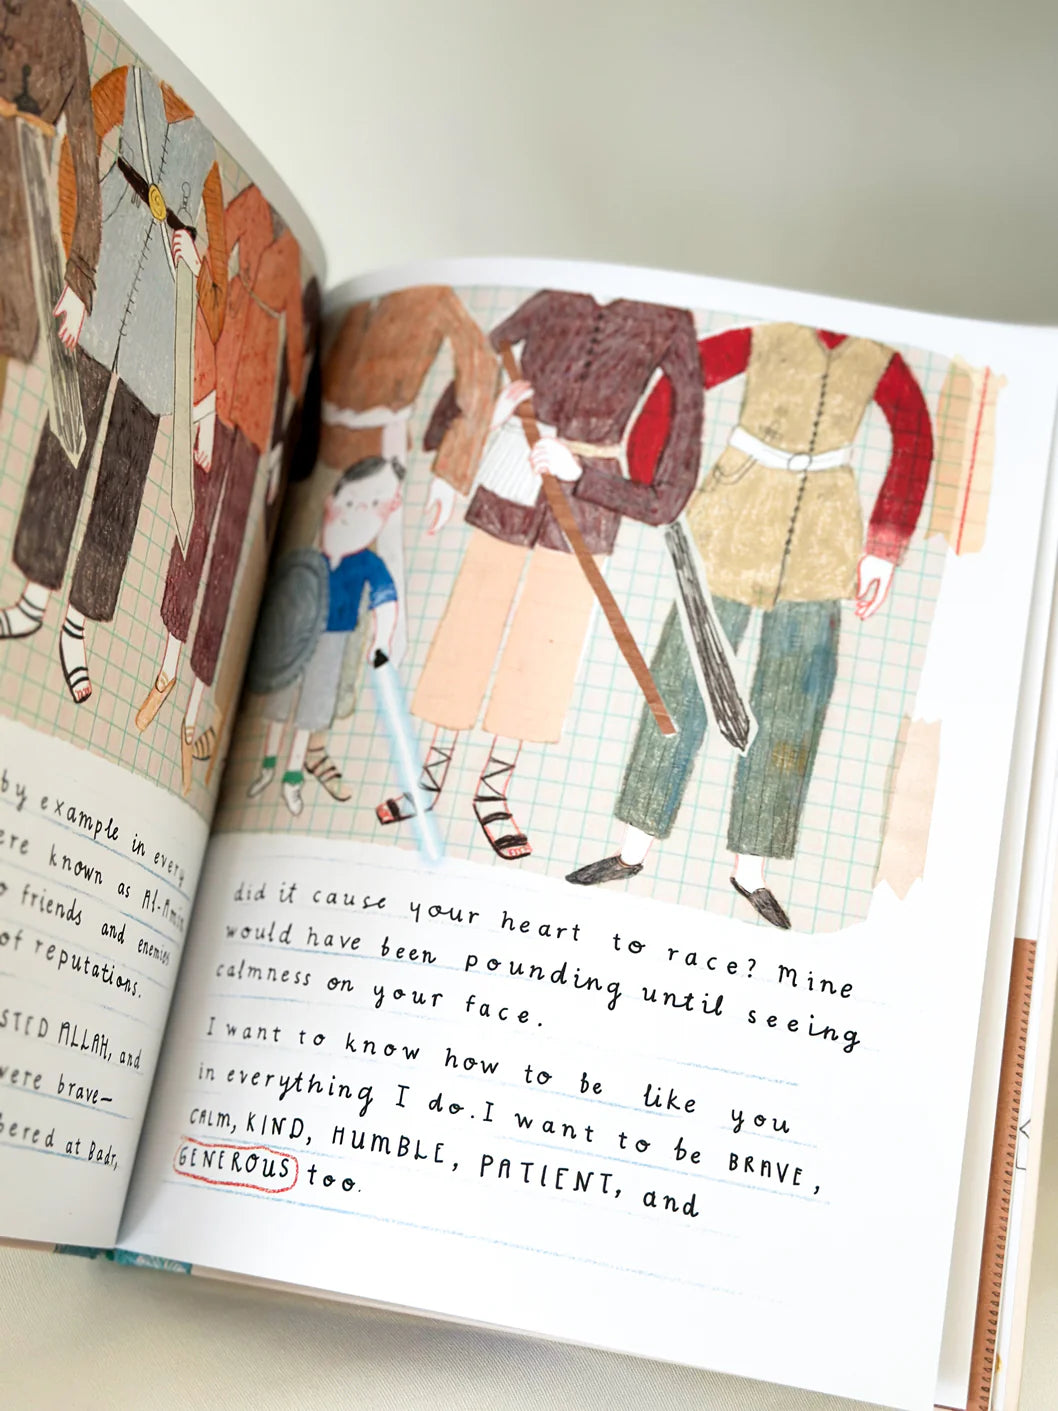 by example in every
ere known as Al-Amin
friends and enemies
of reputations.
STED ALLAH, and
were brave—
bered at Badr,
did it cause your heart to race? Mine
would have been pounding until seeing
calmness on your face.
I want to know how to be like you
in everything I do. I want to be BRAVE,
CALM, KIND, HUMBLE, PATIENT, and
GENEROUS too.